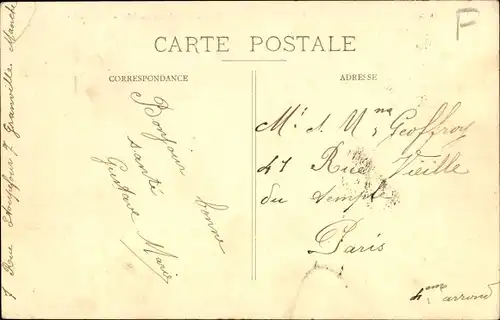 CARTE POSTALE
CORRESPONDANCE
ADRESSE
Bonjour bonne
santé
Gustave Marie
Mr & Mme Geoffroy
47 Rue Vieille
du temple
Paris
4eme arrond
7 Rue 7 Granville Manche
F